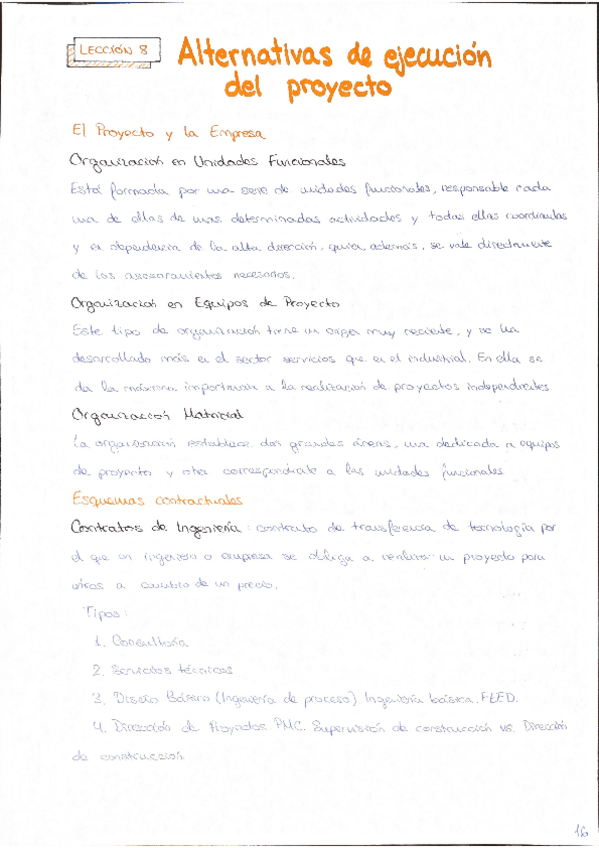 LECCIÓN 8
Alternativas de ejecución
del proyecto
El Proyecto y la Empresa
Organización en Unidades Funcionales
Está formada por una serie de unidades funcionales, responsable cada
una de ellas de unas determinadas actividades y todas ellas coordinadas
y en dependencia de la alta dirección, quien además, se vale directamente
de los asesoramientos necesarios.
Organización en Equipos de Proyecto
Este tipo de organización tiene un origen muy reciente, y se ha
desarrollado más en el sector servicios que en el industrial. En ella se
da la máxima importancia a la realización de proyectos independientes
Organización Matricial
La organización establece dos grandes áreas, una dedicada a equipos
de proyecto y otra correspondiente a las unidades funcionales
Esquemas contractuales
Contratos de Ingeniería: contrato de transferencia de tecnología por
el que un ingeniero o empresa se obliga a realizar un proyecto para
otros a cambio de un precio.
Tipos:
1. Consultoría
2. Servicios técnicos
3. Diseño Básico (Ingeniería de proceso). Ingeniería básica. FEED.
4. Dirección de Proyectos PMC. Supervisión de construcción vs. Dirección
de construcción
16